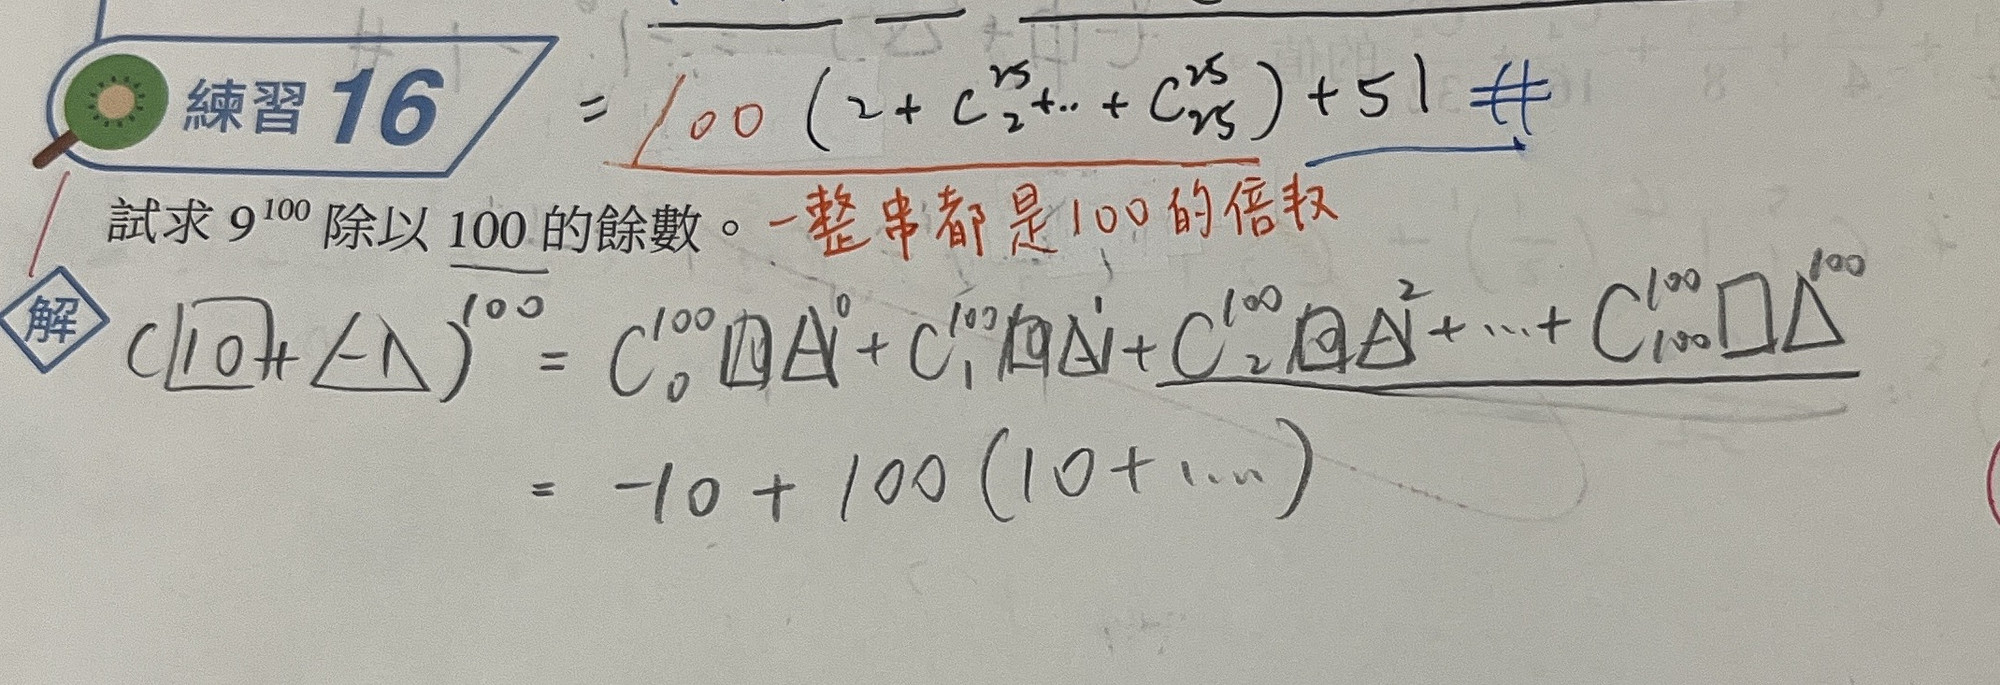 = 100 (2 + C₂²⁵ + ‥ + C₂₅²⁵) + 51 #
練習 16
試求 9¹⁰⁰ 除以 100 的餘數。 一整串都是100的倍数
解 (10 + -1)¹⁰⁰ = C₀¹⁰⁰ □ △⁰ + C₁¹⁰⁰ □ △¹ + C₂¹⁰⁰ □ △² + ... + C₁₀₀¹⁰⁰ □ △¹⁰⁰
= -10 + 100 (10 + ....)